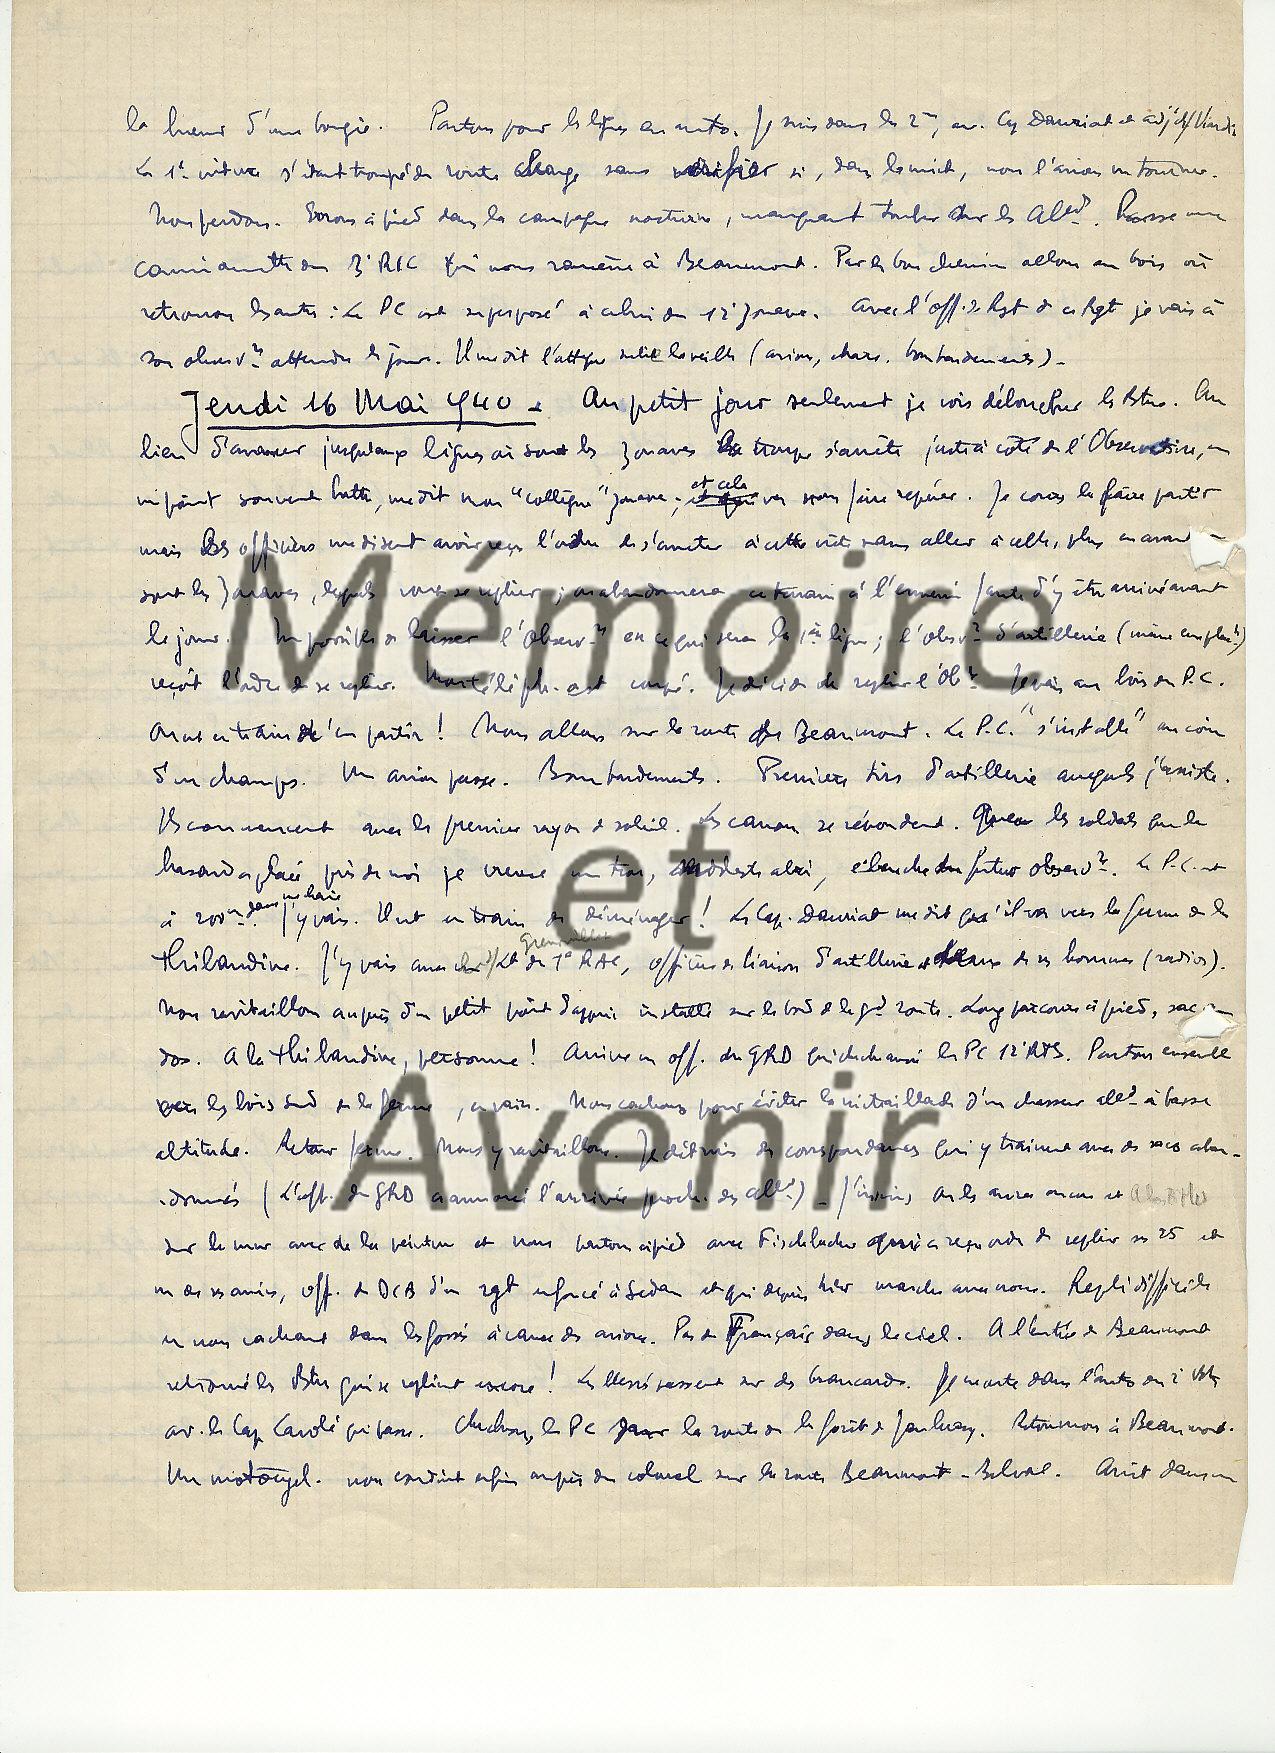 la lueur d'une bougie. Partons pour les lignes en auto. Je suis dans la 2me, av. Cap Dauriat et adj ch/
La 1e voiture s'étant trompé de route change sans vérifier si, dans la nuit, nous l'avions vu tourner.
Nous perdons. Errons à pied dans la campagne nocturne, manquant tomber sur les Alld. Passe une
camionnette du 3e RIC qui nous ramène à Beaumont. Par le bon chemin allons au bois où
retrouvons les autres : Le PC est superposé à celui du 12e Zouave. Avec l'off. de Rgt de ce Rgt je vais à
son observre attendre le jour. Il me dit l'attaque subie la veille (avions, chars, bombardements).
Jeudi 16 Mai 1940 - Au petit jour seulement je vois déboucher les Btns. Au
lieu d'avancer jusqu'aux lignes où sont les zouaves la troupe s'arrête juste à côté de l'Observatoire, en
un point souvent battu, me dit mon "collègue" zouave ; et cela va nous faire repérer. Je cours les faire partir
mais les officiers me disent avoir reçu l'ordre de s'arrêter à cette crête sans aller à celle, plus en avant
sont les zouaves, lesquels vont se replier ; on abandonnera ce terrain à l'ennemi faute d'y être arrivé avant
le jour. Impossible de laisser l'Observre en ce qui sera la 1ère ligne ; l'observre d'artillerie (même emplact)
reçoit l'ordre de se replier. Mon téléph. est coupé. Je décide de replier l'Obre. Je vais au bois du P.C.
On est en train d'en partir ! Nous allons sur la route de Beaumont. Le P.C. "s'installe" au coin
d'un champs. Un avion passe. Bombardements. Premiers tirs d'artillerie auxquels j'assiste.
Ils commencent avec les premiers rayon de soleil. Les canons se répondent. Avec les soldats que le
hasard a placé près de moi je creuse un trou, modeste abri, ébauche du futur observre. Le P.C. est
à 200m dans une haie. J'y vais. Il est en train de déménager ! Le Cap. Dauriat me dit qu'il va vers la ferme de la
Thibaudine. J'y vais avec Lt du 1e RAC, officier de liaison d'artillerie et deux de ses hommes (radios).
Nous ravitaillons auprès d'un petit point d'appui installé sur le bord de la gde route. Long parcours à pied, sac au
dos. A la Thibaudine, personne ! Arrive un off. du GRD qui cherche aussi le PC 12e RTS. Partons ensemble
vers les bois Sud de la ferme, en vain. Nous cachons pour éviter la mitraillade d'un chasseur alld à basse
altitude. Retour ferme. Nous y ravitaillons. Je détruis des correspondances qui y trainent avec des sacs aban-
-donnés (L'off. du GRD a annoncé l'arrivée proche des allds) -
sur le mur avec de la peinture et nous partons à pied avec Fischbacher qui a reçu ordre de replier ses 25 et
un de ses amis, off. de DCB d'un rgt enfoncé à Sedan et qui depuis hier marche avec nous. Repli difficile
en nous cachant dans les fossés à cause des avions. Pas de Français dans le ciel. A l'entrée de Beaumont
retrouvé les Btns qui se replient encore ! Les blessés passent sur des brancards. Je monte dans l'auto du 2e Btn
av. le Cap qui passe. Cherchons le PC dans la route de la forêt de Jaulnay. Retournons à Beaumont.
Un motocycl. nous conduit enfin auprès du colonel sur la route Beaumont - Belval. Arrêt dans un